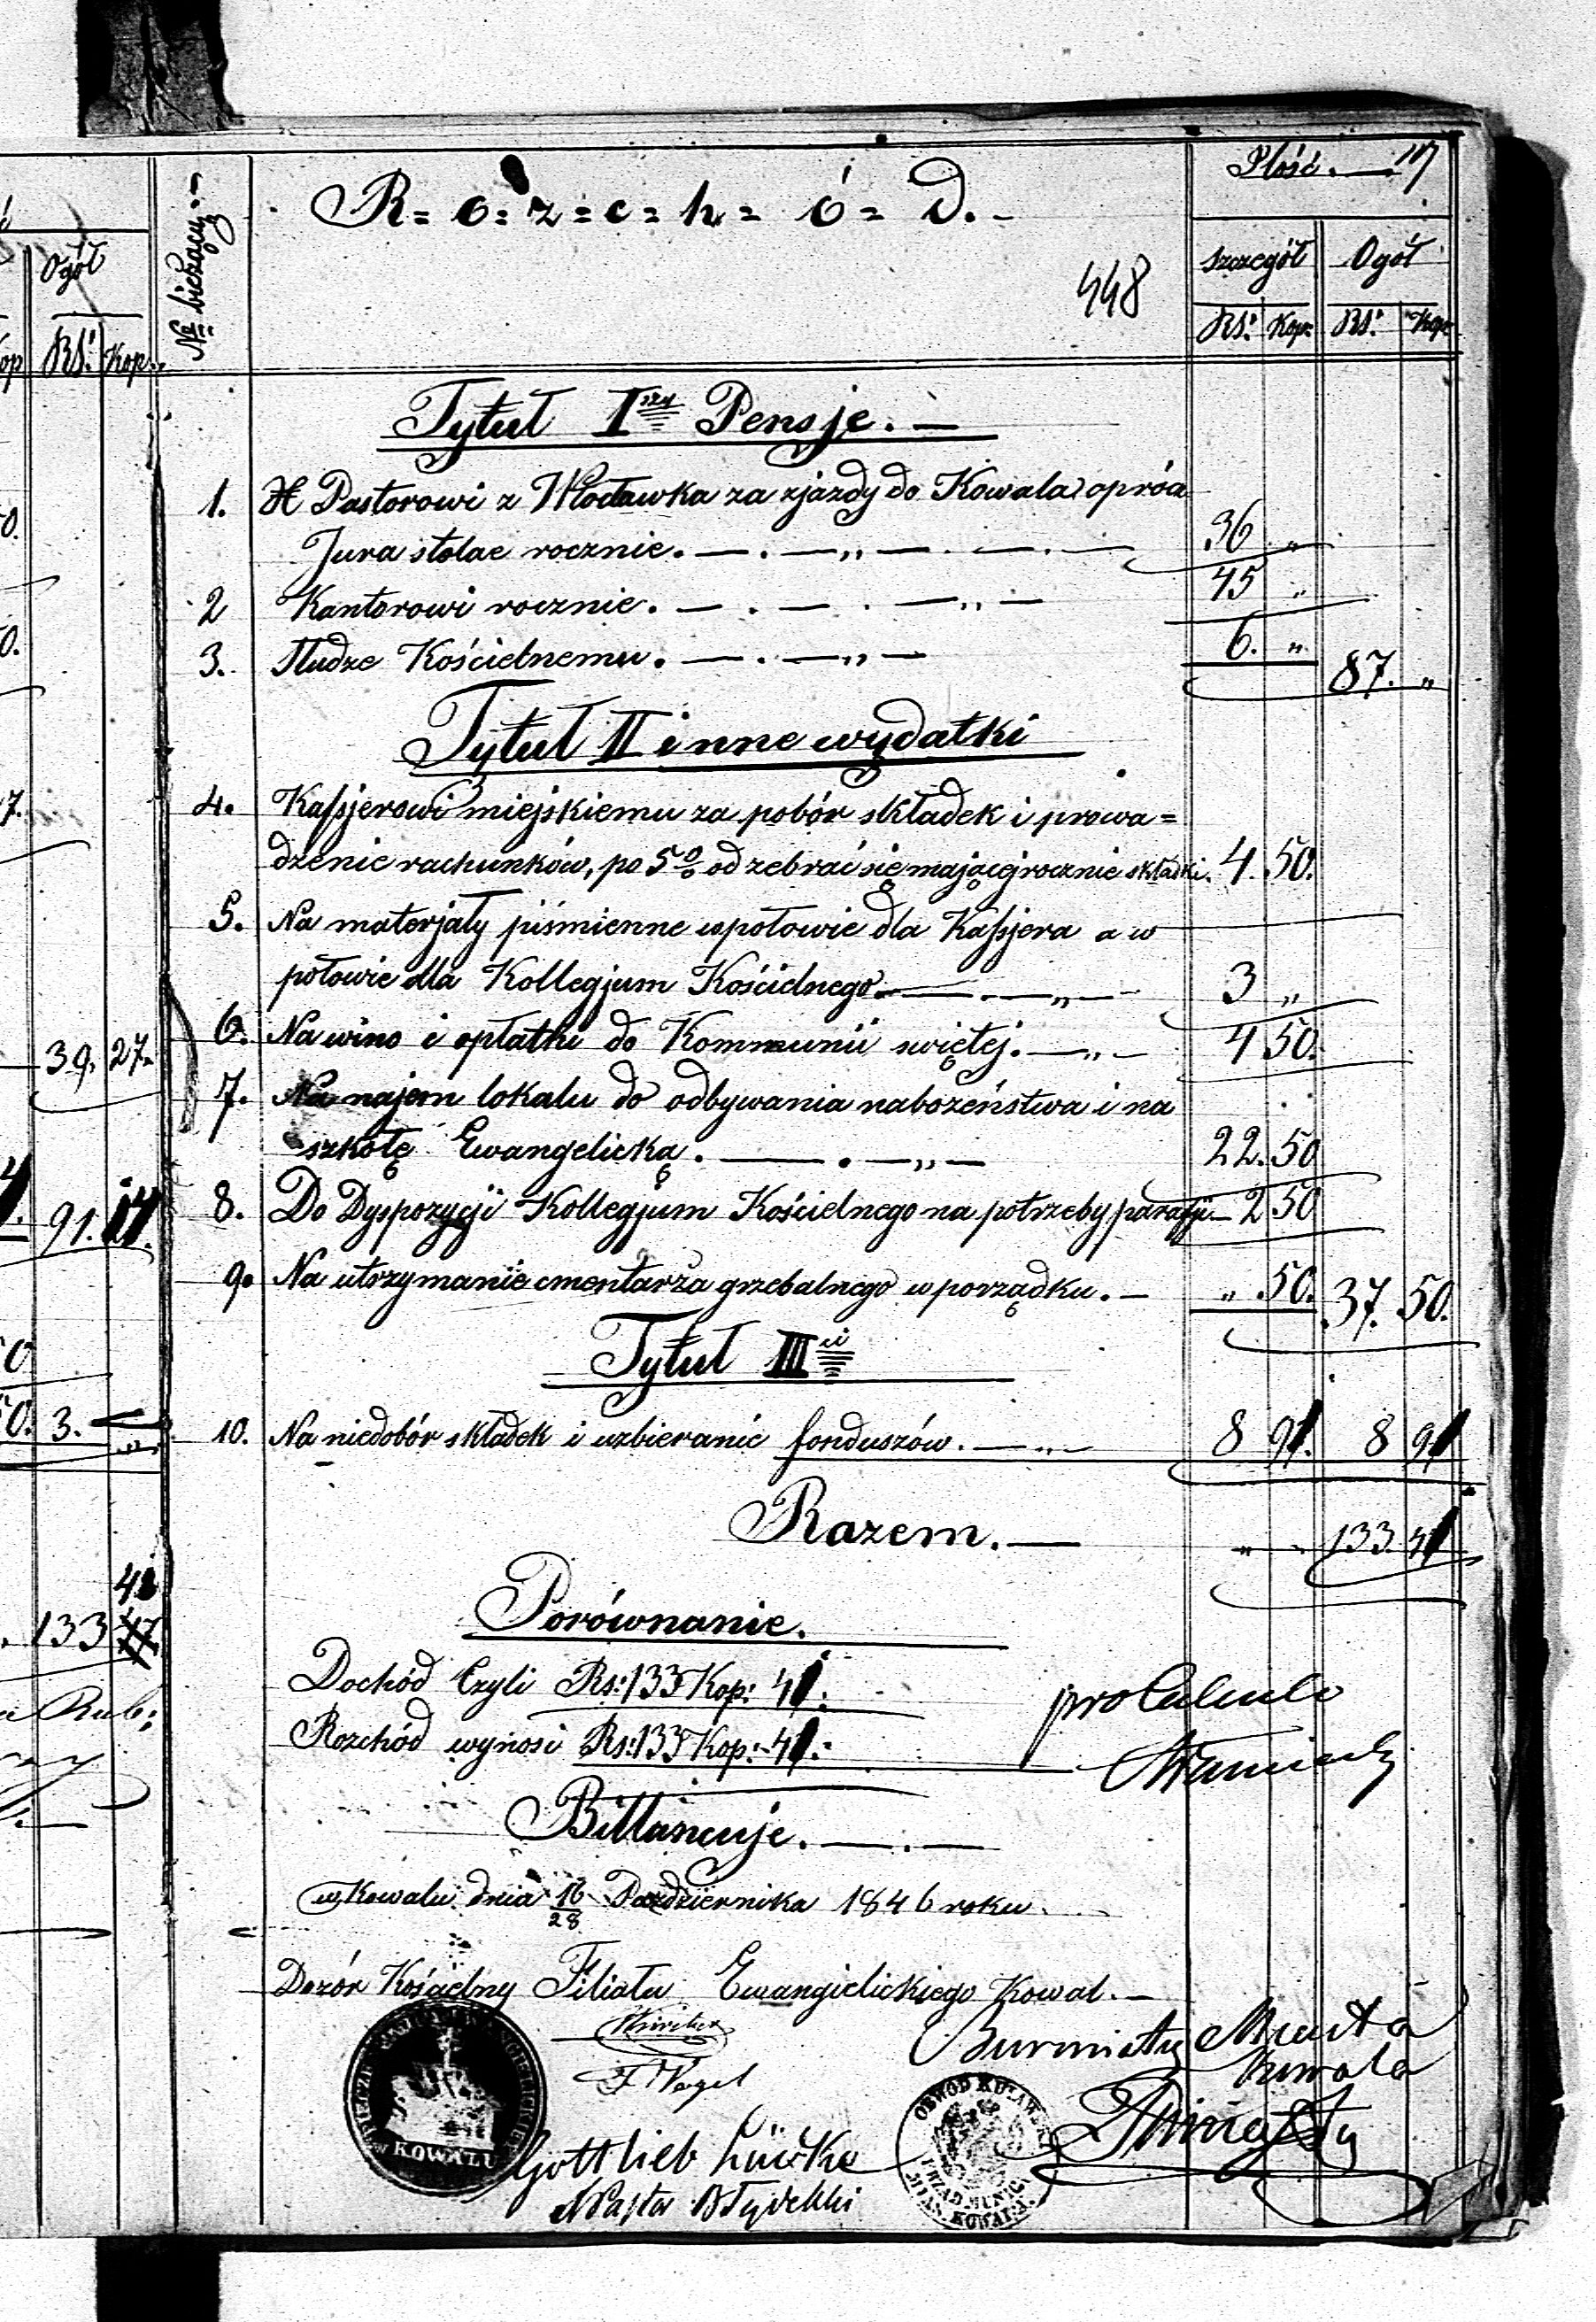 Ogół
Rs: Kop.
39. 27.
91. 14.
3.
133
a Rub:
№ bieżący
R=o=z=c=h=ó=d.
448
Ilość.
szczegół Ogół
Rs: Kop: Rs: Kop:
Tytuł I szy Pensje.
1. Pastorowi z Włocławka za zjazdy do Kowala oprócz
Jura stolae rocznie. 36 "
2 Kantorowi rocznie. 45 "
3. Słudze Kościelnemu. 6. " 87. "
Tytuł II inne wydatki
4. Kassjerowi miejskiemu za pobór składek i prowa=
dzenie rachunków, po 5% od zebrać się mającej rocznie składki. 4. 50.
5. Na materjały piśmienne w połowie dla Kassjera a w
połowie dla Kollegjum Kościelnego 3 "
6. Na wino i opłatki do Kommunii swiętej. 4 50.
7. Na najem lokalu do odbywania nabożeństwa i na
szkołę Ewangelicką. 22. 50
8. Do Dyspozycji Kollegjum Kościelnego na potrzeby parafji 2 50
9. Na utrzymanie cmentarza grzebalnego w porządku. " 50. 37. 50.
Tytuł III ci
10. Na niedobór składek i uzbieranie fonduszów. 8 91. 8 91
Razem. " 133. 41
Porównanie.
Dochód Czyli Rs: 133 Kop: 41.
Rozchód wynosi Rs: 133 Kop: 41.
pro Calculo
Billansuje.
w Kowalu dnia 16/28 Października 1846 roku.
Dozór Kościelny Filiału Ewangielickiego Kowal.
Burmistrz Miasta
Kowala
F Vogel
Gottlieb Lüdke
W KOWALU
OBWÓD KUJAWSKI
KOWALA